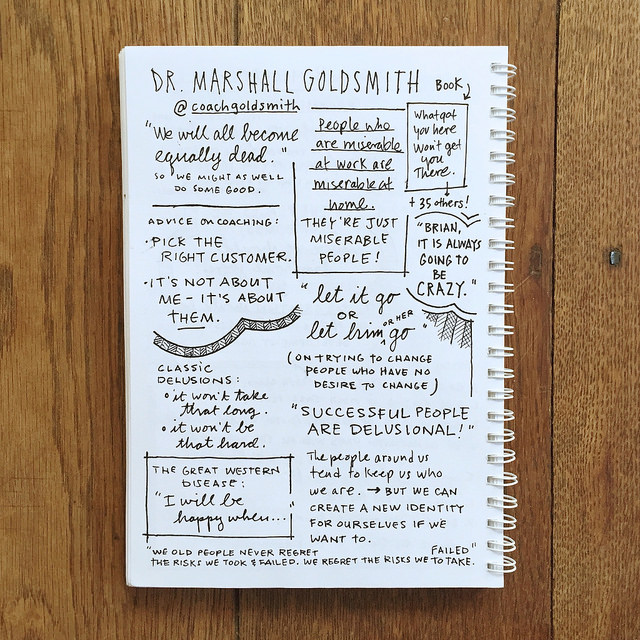 DR. MARSHALL GOLDSMITH
@coachgoldsmith
"We will all become
equally dead."
SO WE MIGHT AS WELL
DO SOME GOOD.
People who
are miserable
at work are
miserable at
home.
THEY'RE JUST
MISERABLE
PEOPLE!
BOOK
What got
you here
Won't get
you
There.
+ 35 others!
"BRIAN,
IT IS ALWAYS
GOING TO
BE
CRAZY."
ADVICE ON COACHING:
• PICK THE
RIGHT CUSTOMER.
• IT'S NOT ABOUT
ME - IT'S ABOUT
THEM.
"let it go
OR
let him OR HER go"
(ON TRYING TO CHANGE
PEOPLE WHO HAVE NO
DESIRE TO CHANGE)
CLASSIC
DELUSIONS:
• it won't take
that long.
• it won't be
that hard.
"SUCCESSFUL PEOPLE
ARE DELUSIONAL!"
THE GREAT WESTERN
DISEASE:
"I will be
happy when..."
The people around us
tend to keep us who
we are. → BUT WE CAN
CREATE A NEW IDENTITY
FOR OURSELVES IF WE
WANT TO.
"WE OLD PEOPLE NEVER REGRET
THE RISKS WE TOOK & FAILED. WE REGRET THE RISKS WE FAILED TO TAKE."